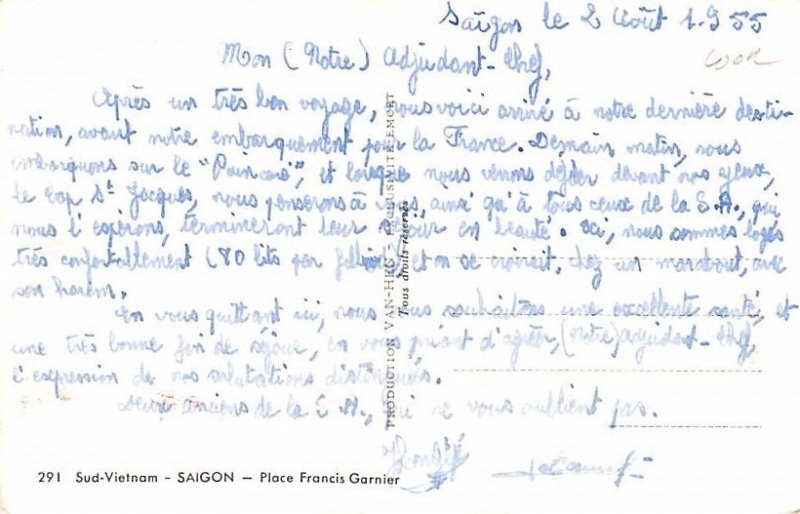 Saïgon le 2 Août 1.955
Mon (Notre) Adjudant-Chef,
Après un très bon voyage, nous voici arrivé à notre dernière desti-
nation, avant notre embarquement pour la France. Demain matin, nous
embarquons sur le "Poincaré", et lorsque nous verrons défiler devant nos yeux,
le Cap St Jacques, nous penserons à vous, ainsi qu'à tous ceux de la S.A., qui
nous l'espérons, termineront leur séjour en beauté. Ici, nous sommes logés
très confortablement (80 lits par et on se croirait, chez un marabout, avec
son harem.
En vous quittant ici, nous vous souhaitons une excellente santé, et
une très bonne fin de séjour, en vous priant d'agréer, (notre) adjudant-chef,
l'expression de nos salutations distinguées.
Deux anciens de la S.A., qui ne vous oublient pas.
PRODUCTION VAN-HEC - EXCLUSIVITE LEMORT
Tous droits réservés
291 Sud-Vietnam - SAIGON - Place Francis Garnier